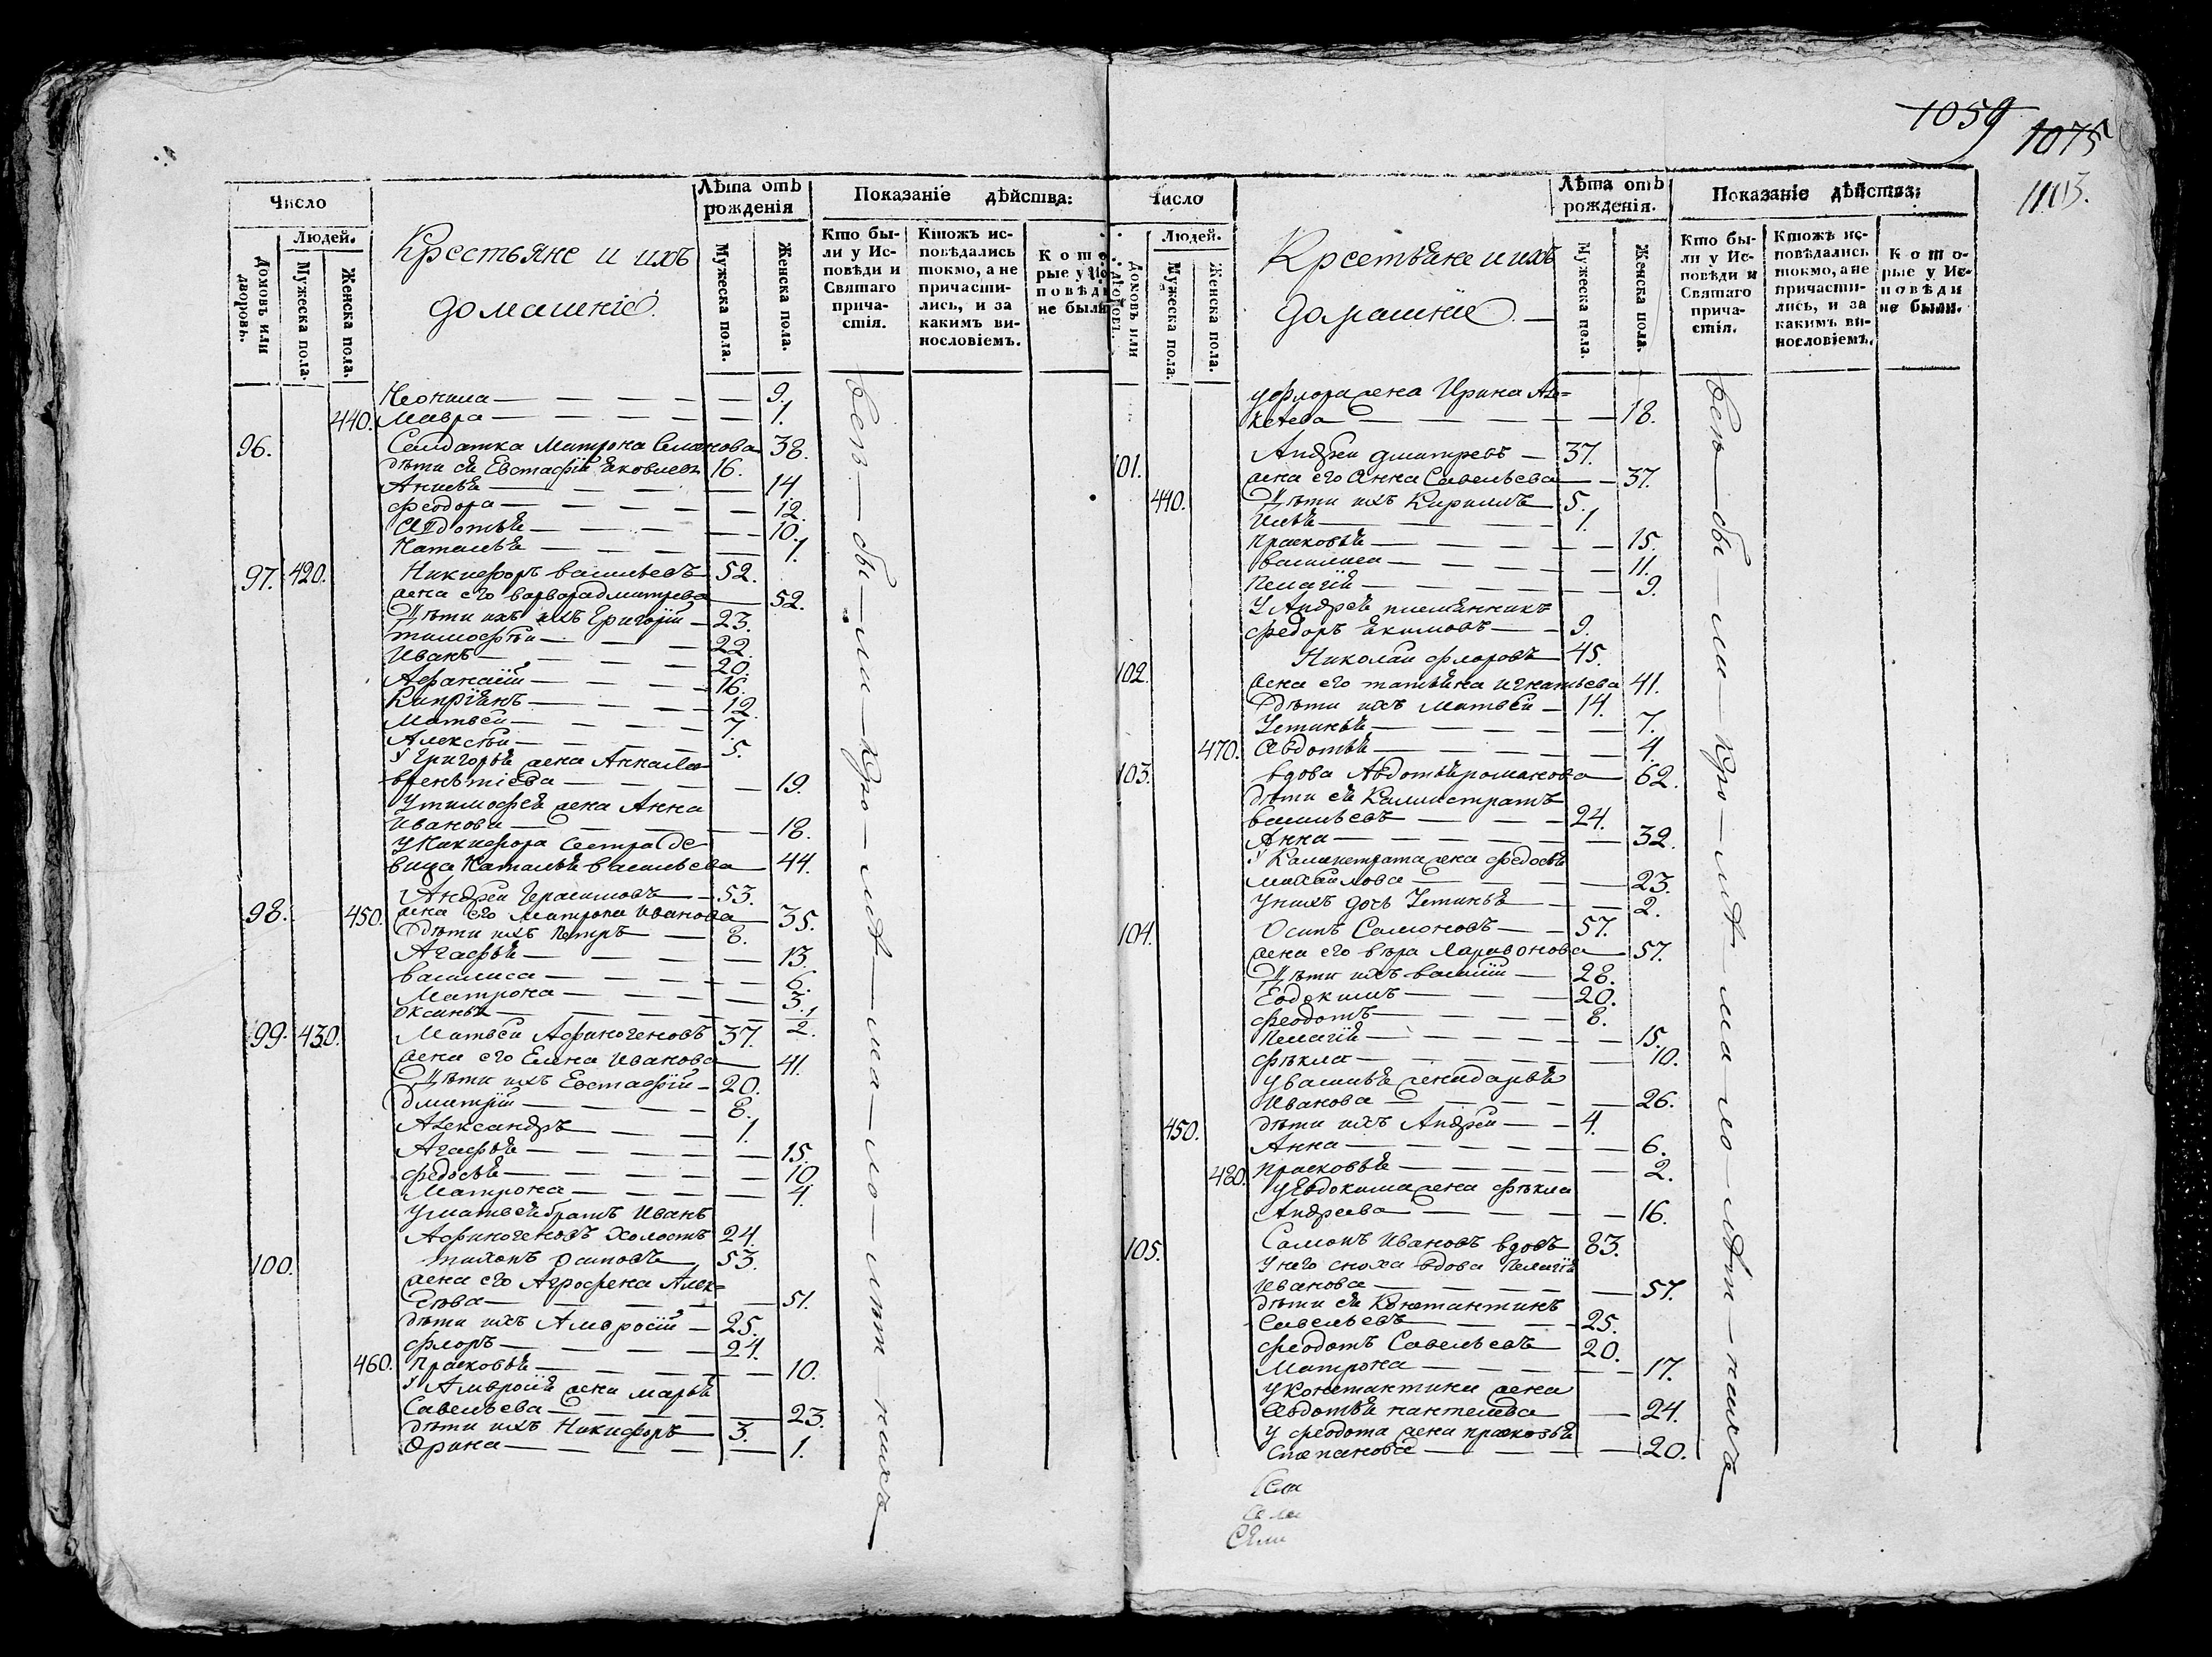 1059
1075
1103.
Число
Людей.
Домовъ или дворовъ.
Мужеска пола.
Женска пола.
Крестьяне и ихъ
домашніе.
Лѣта отъ
рожденія
Мужеска пола.
Женска пола.
Показаніе дѣйства:
Кто бы-
ли у Ис-
повѣди и
Святаго
прича-
стія.
Ктожъ ис-
повѣдались
токмо, а не
причасти-
лись, и за
какимъ ви-
нословіемъ.
Кото
рые у Ис
повѣди
не были
Неонила — 9.
440. Мавра — 1.
96. Салдатка Матрона Семионова 38.
дѣти ея Евстафій Яковлевъ 16.
Анисья — 14.
Феодора — 12.
Авдотья — 10.
Наталья — 1.
97. 420. Никифоръ Васильевъ 52.
жена его Варвара Дмитрева 52.
Дѣти ихъ Григорій — 23.
Тимофѣй — 22.
Иванъ — 20.
Афанасій — 16.
Кипріянъ — 12.
Матвей — 7.
Алексѣй — 5.
У Григорья жена Анна Ла-
врентіева — 19.
У Тимофея жена Анна
Иванова — 18.
У Никифора сестра де
вица Наталья Васильева 44.
98. Андрей Герасимовъ — 53.
450. жена его Матрона Иванова 35.
Дѣти ихъ Петръ — 8.
Агафья — 13.
Василиса — 6.
Матрона — 3.
Оксинья — 1/2.
99. 430. Матвей Афиногеновъ 37.
жена его Елена Иванова 41.
Дѣти ихъ Евстафій — 20.
Дмитрій — 8.
Александръ — 1.
Агафья — 15.
Федосья — 10.
Матрона — 4.
У Матвея братъ Иванъ
Афиногеновъ холостъ 24.
100. Тихонъ Осиповъ 53.
жена его Агрофена Алек-
сѣва — 51.
дѣти ихъ Амвросій — 25.
Флоръ — 21.
460. Прасковья — 10.
У Амвросія жена Марья
Савельева — 23.
дѣти ихъ Никифоръ 3.
Орина — 1.
Число
Людей.
Домовъ или
Мужеска пола.
Женска пола.
Крестьяне и ихъ
домашніе —
Лѣта отъ
рожденія.
Мужеска пола.
Женска пола.
Показаніе дѣйства:
Кто бы-
ли у Ис-
повѣди и
Святаго
прича-
стія.
Ктожъ ис-
повѣдались
токмо, а не
причасти-
лись, и за
какимъ ви-
нословіемъ.
Кото-
рые у Ис-
повѣди
не были.
у Флора жена Ирина Але-
ксѣева — 18.
101. Андрей Дмитревъ — 37.
жена его Анна Савельева — 37.
440. Дѣти ихъ Кирилъ — 5.
Илья — 1.
Прасковья — 15.
Василиса — 11.
Пелагія — 9.
У Андрея племянникъ
Федоръ Екимовъ — 9.
102. Николай Флоровъ 45.
жена его Татьяна Игнатьева 41.
Дѣти ихъ Матвей — 14.
Устинья — 7.
470. Авдотья — 4.
103. вдова Авдотья Романова 62.
дѣти ея Каллистратъ
Васильевъ — 24.
Анна — 32.
У Калистрата жена Федосья
Михайлова — 23.
У нихъ дочь Устинья — 2.
104. Осипъ Самоновъ — 57.
жена его Вѣра Ларивонова 57.
Дѣти ихъ Василій — 28.
Евдокимъ — 20.
Феодотъ — 8.
Пелагія — 15.
Фѣкла — 10.
У Василья жена Дарья
Иванова — 26.
450. дѣти ихъ Андрей — 4.
Анна — 6.
480. Прасковья — 2.
У Евдокима жена Фѣкла
Андреева — 16.
105. Самонъ Ивановъ вдовъ 83.
У него сноха вдова Пелагія
Иванова — 57.
дѣти ея Константинъ
Савельевъ — 25.
Феодотъ Савельевъ 20.
Матрона — 17.
У Константина жена
Авдотья Пантелева — 24.
У Феодота жена Прасковья
Степанова — 20.